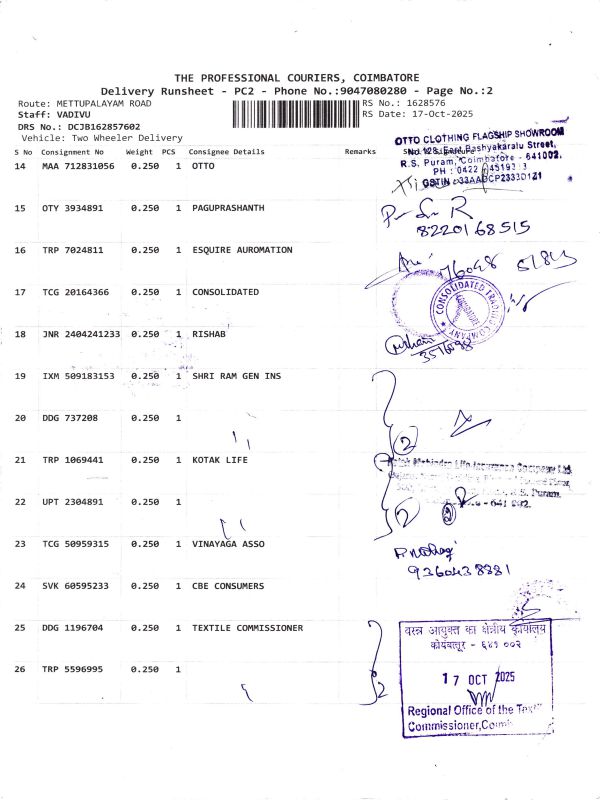 THE PROFESSIONAL COURIERS, COIMBATORE
Delivery Runsheet - PC2 - Phone No.:9047080280 - Page No.:2
Route: METTUPALAYAM ROAD
RS No.: 1628576
Staff: VADIVU
RS Date: 17-Oct-2025
DRS No.: DCJB162857602
Vehicle: Two Wheeler Delivery
S No Consignment No Weight PCS Consignee Details Remarks
OTTO CLOTHING FLAGSHIP SHOWROOM
No.128, East Bashyakaralu Street,
R.S. Puram, Coimbatore - 641002.
PH : 0422
GSTIN :
14 MAA 712831056 0.250 1 OTTO
15 OTY 3934891 0.250 1 PAGUPRASHANTH
8220168515
16 TRP 7024811 0.250 1 ESQUIRE AUROMATION
76048
17 TCG 20164366 0.250 1 CONSOLIDATED
CONSOLIDATED TRADING COMPANY
COIMBATORE
18 JNR 2404241233 0.250 1 RISHAB
19 IXM 509183153 0.250 1 SHRI RAM GEN INS
20 DDG 737208 0.250 1
2
21 TRP 1069441 0.250 1 KOTAK LIFE
Kotak Mahindra Life Insurance Company Ltd.
R.S. Puram,
- 641 002.
22 UPT 2304891 0.250 1
2
23 TCG 50959315 0.250 1 VINAYAGA ASSO
9360438881
24 SVK 60595233 0.250 1 CBE CONSUMERS
25 DDG 1196704 0.250 1 TEXTILE COMMISSIONER
वस्त्र आयुक्त का क्षेत्रीय कार्यालय
कोयंबत्तूर - ६४१ ००२
26 TRP 5596995 0.250 1
2
17 OCT 2025
Regional Office of the
Commissioner,